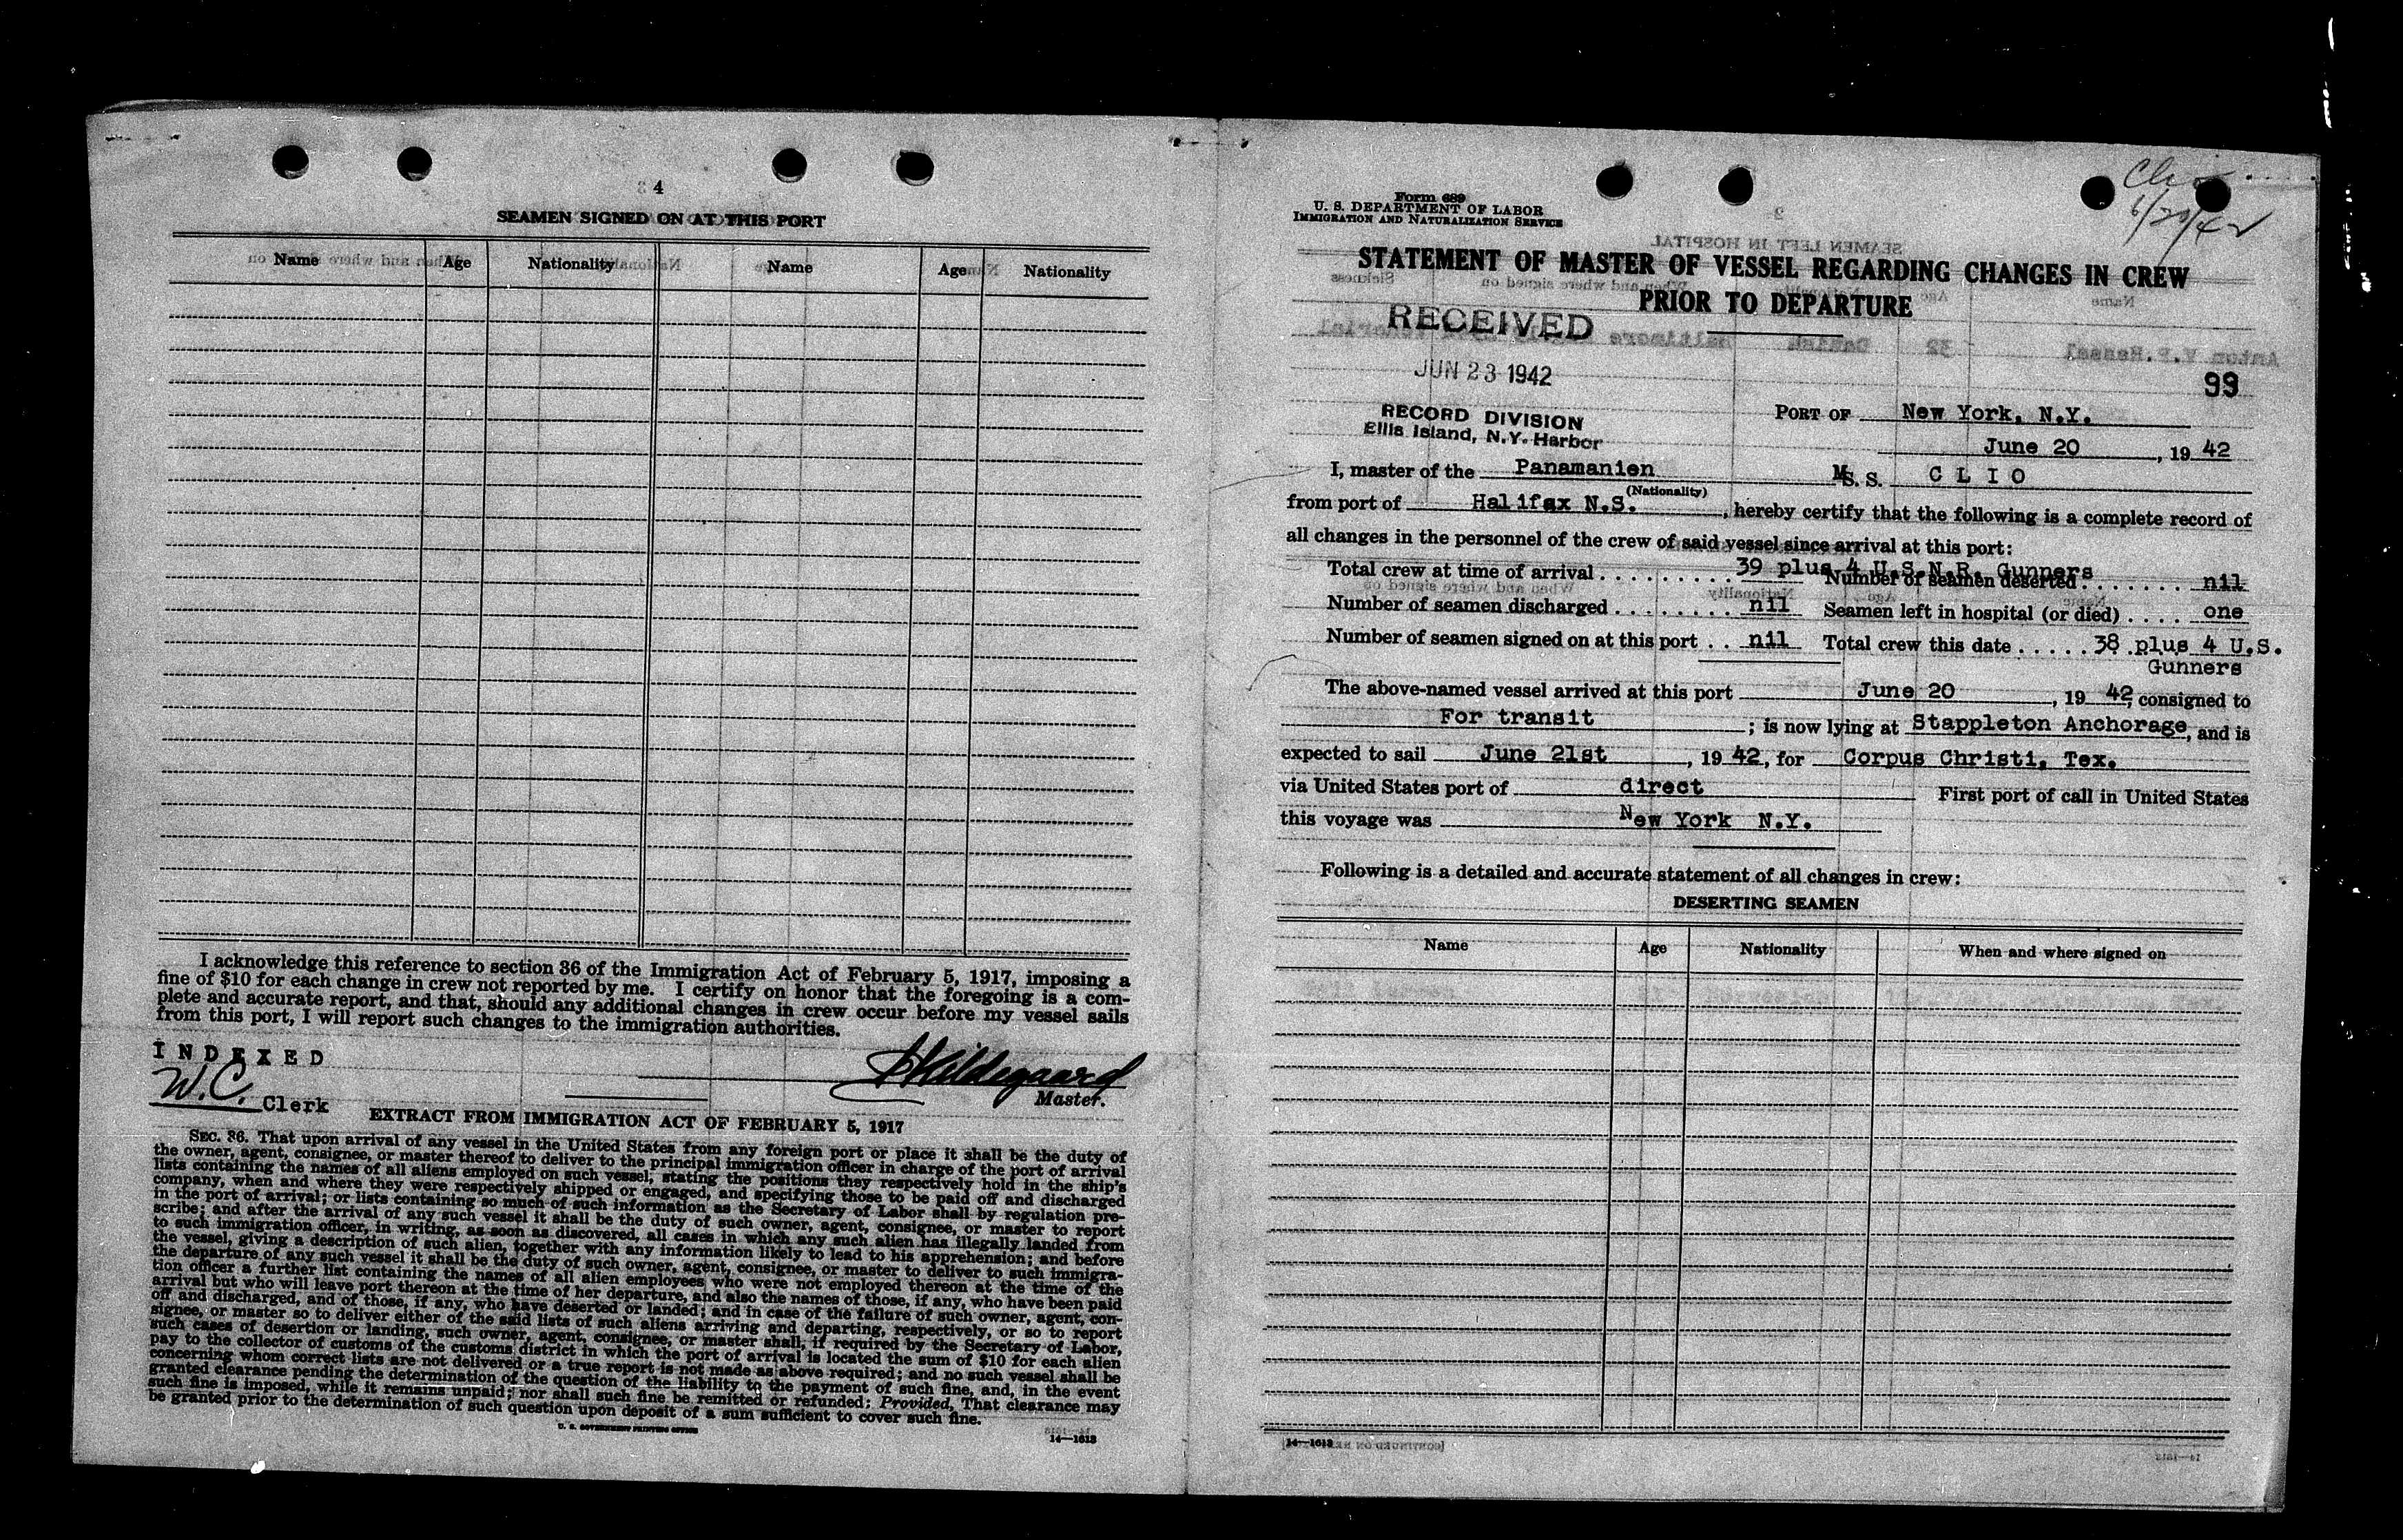 4
SEAMEN SIGNED ON AT THIS PORT
Name Age Nationality Name Age Nationality
I acknowledge this reference to section 36 of the Immigration Act of February 5, 1917, imposing a
fine of $10 for each change in crew not reported by me. I certify on honor that the foregoing is a com-
plete and accurate report, and that, should any additional changes in crew occur before my vessel sails
from this port, I will report such changes to the immigration authorities.
INDEXED
W.C. Clerk
Kildegaard
Master.
EXTRACT FROM IMMIGRATION ACT OF FEBRUARY 5, 1917
SEC. 36. That upon arrival of any vessel in the United States from any foreign port or place it shall be the duty of
the owner, agent, consignee, or master thereof to deliver to the principal immigration officer in charge of the port of arrival
lists containing the names of all aliens employed on such vessel, stating the positions they respectively hold in the ship's
company, when and where they were respectively shipped or engaged, and specifying those to be paid off and discharged
in the port of arrival; or lists containing so much of such information as the Secretary of Labor shall by regulation pre-
scribe; and after the arrival of any such vessel it shall be the duty of such owner, agent, consignee, or master to report
to such immigration officer, in writing, as soon as discovered, all cases in which any such alien has illegally landed from
the vessel, giving a description of such alien, together with any information likely to lead to his apprehension; and before
the departure of any such vessel it shall be the duty of such owner, agent, consignee, or master to deliver to such immigra-
tion officer a further list containing the names of all alien employees who were not employed thereon at the time of the
arrival but who will leave port thereon at the time of her departure, and also the names of those, if any, who have been paid
off and discharged, and of those, if any, who have deserted or landed; and in case of the failure of such owner, agent, con-
signee, or master so to deliver either of the said lists of such aliens arriving and departing, respectively, or so to report
such cases of desertion or landing, such owner, agent, consignee, or master shall, if required by the Secretary of Labor,
pay to the collector of customs of the customs district in which the port of arrival is located the sum of $10 for each alien
concerning whom correct lists are not delivered or a true report is not made as above required; and no such vessel shall be
granted clearance pending the determination of the question of the liability to the payment of such fine, and, in the event
such fine is imposed, while it remains unpaid; nor shall such fine be remitted or refunded: Provided, That clearance may
be granted prior to the determination of such question upon deposit of a sum sufficient to cover such fine.
U. S. GOVERNMENT PRINTING OFFICE
14—1613
Clio
6/20/42
Form 689
U. S. DEPARTMENT OF LABOR
IMMIGRATION AND NATURALIZATION SERVICE
STATEMENT OF MASTER OF VESSEL REGARDING CHANGES IN CREW
PRIOR TO DEPARTURE
RECEIVED
JUN 23 1942
99
RECORD DIVISION
Ellis Island, N.Y. Harbor
PORT OF New York, N.Y.
June 20, 19 42
I, master of the Panamanien M S. S. C L I O
(Nationality)
from port of Halifax N.S., hereby certify that the following is a complete record of
all changes in the personnel of the crew of said vessel since arrival at this port:
Total crew at time of arrival 39 plus 4 U.S.N.R. Gunners Number of seamen deserted nil
Number of seamen discharged nil Seamen left in hospital (or died) one
Number of seamen signed on at this port nil Total crew this date 38 plus 4 U.S.
Gunners
The above-named vessel arrived at this port June 20, 19 42, consigned to
For transit; is now lying at Stappleton Anchorage, and is
expected to sail June 21st, 19 42, for Corpus Christi, Tex.
via United States port of direct First port of call in United States
this voyage was New York N.Y.
Following is a detailed and accurate statement of all changes in crew:
DESERTING SEAMEN
Name Age Nationality When and where signed on
14—1613